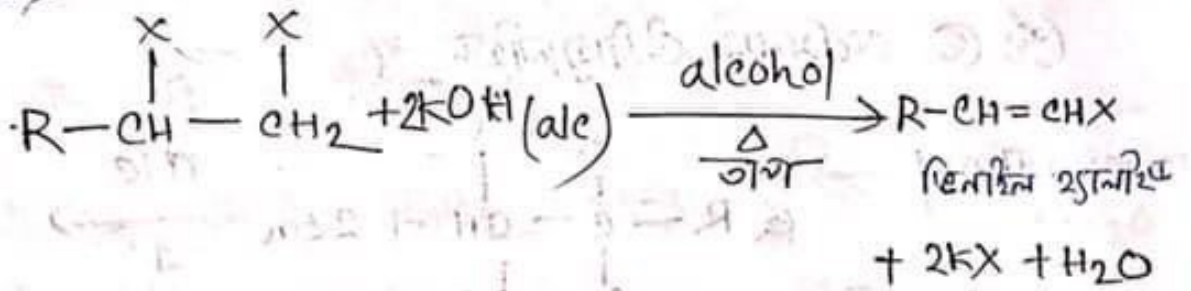 X X
·R—CH—CH₂ +2KOH (alc) alcohol → R-CH=CHX
Δ
তাপ
ভিনাইল হ্যালাইড
+ 2KX + H₂O